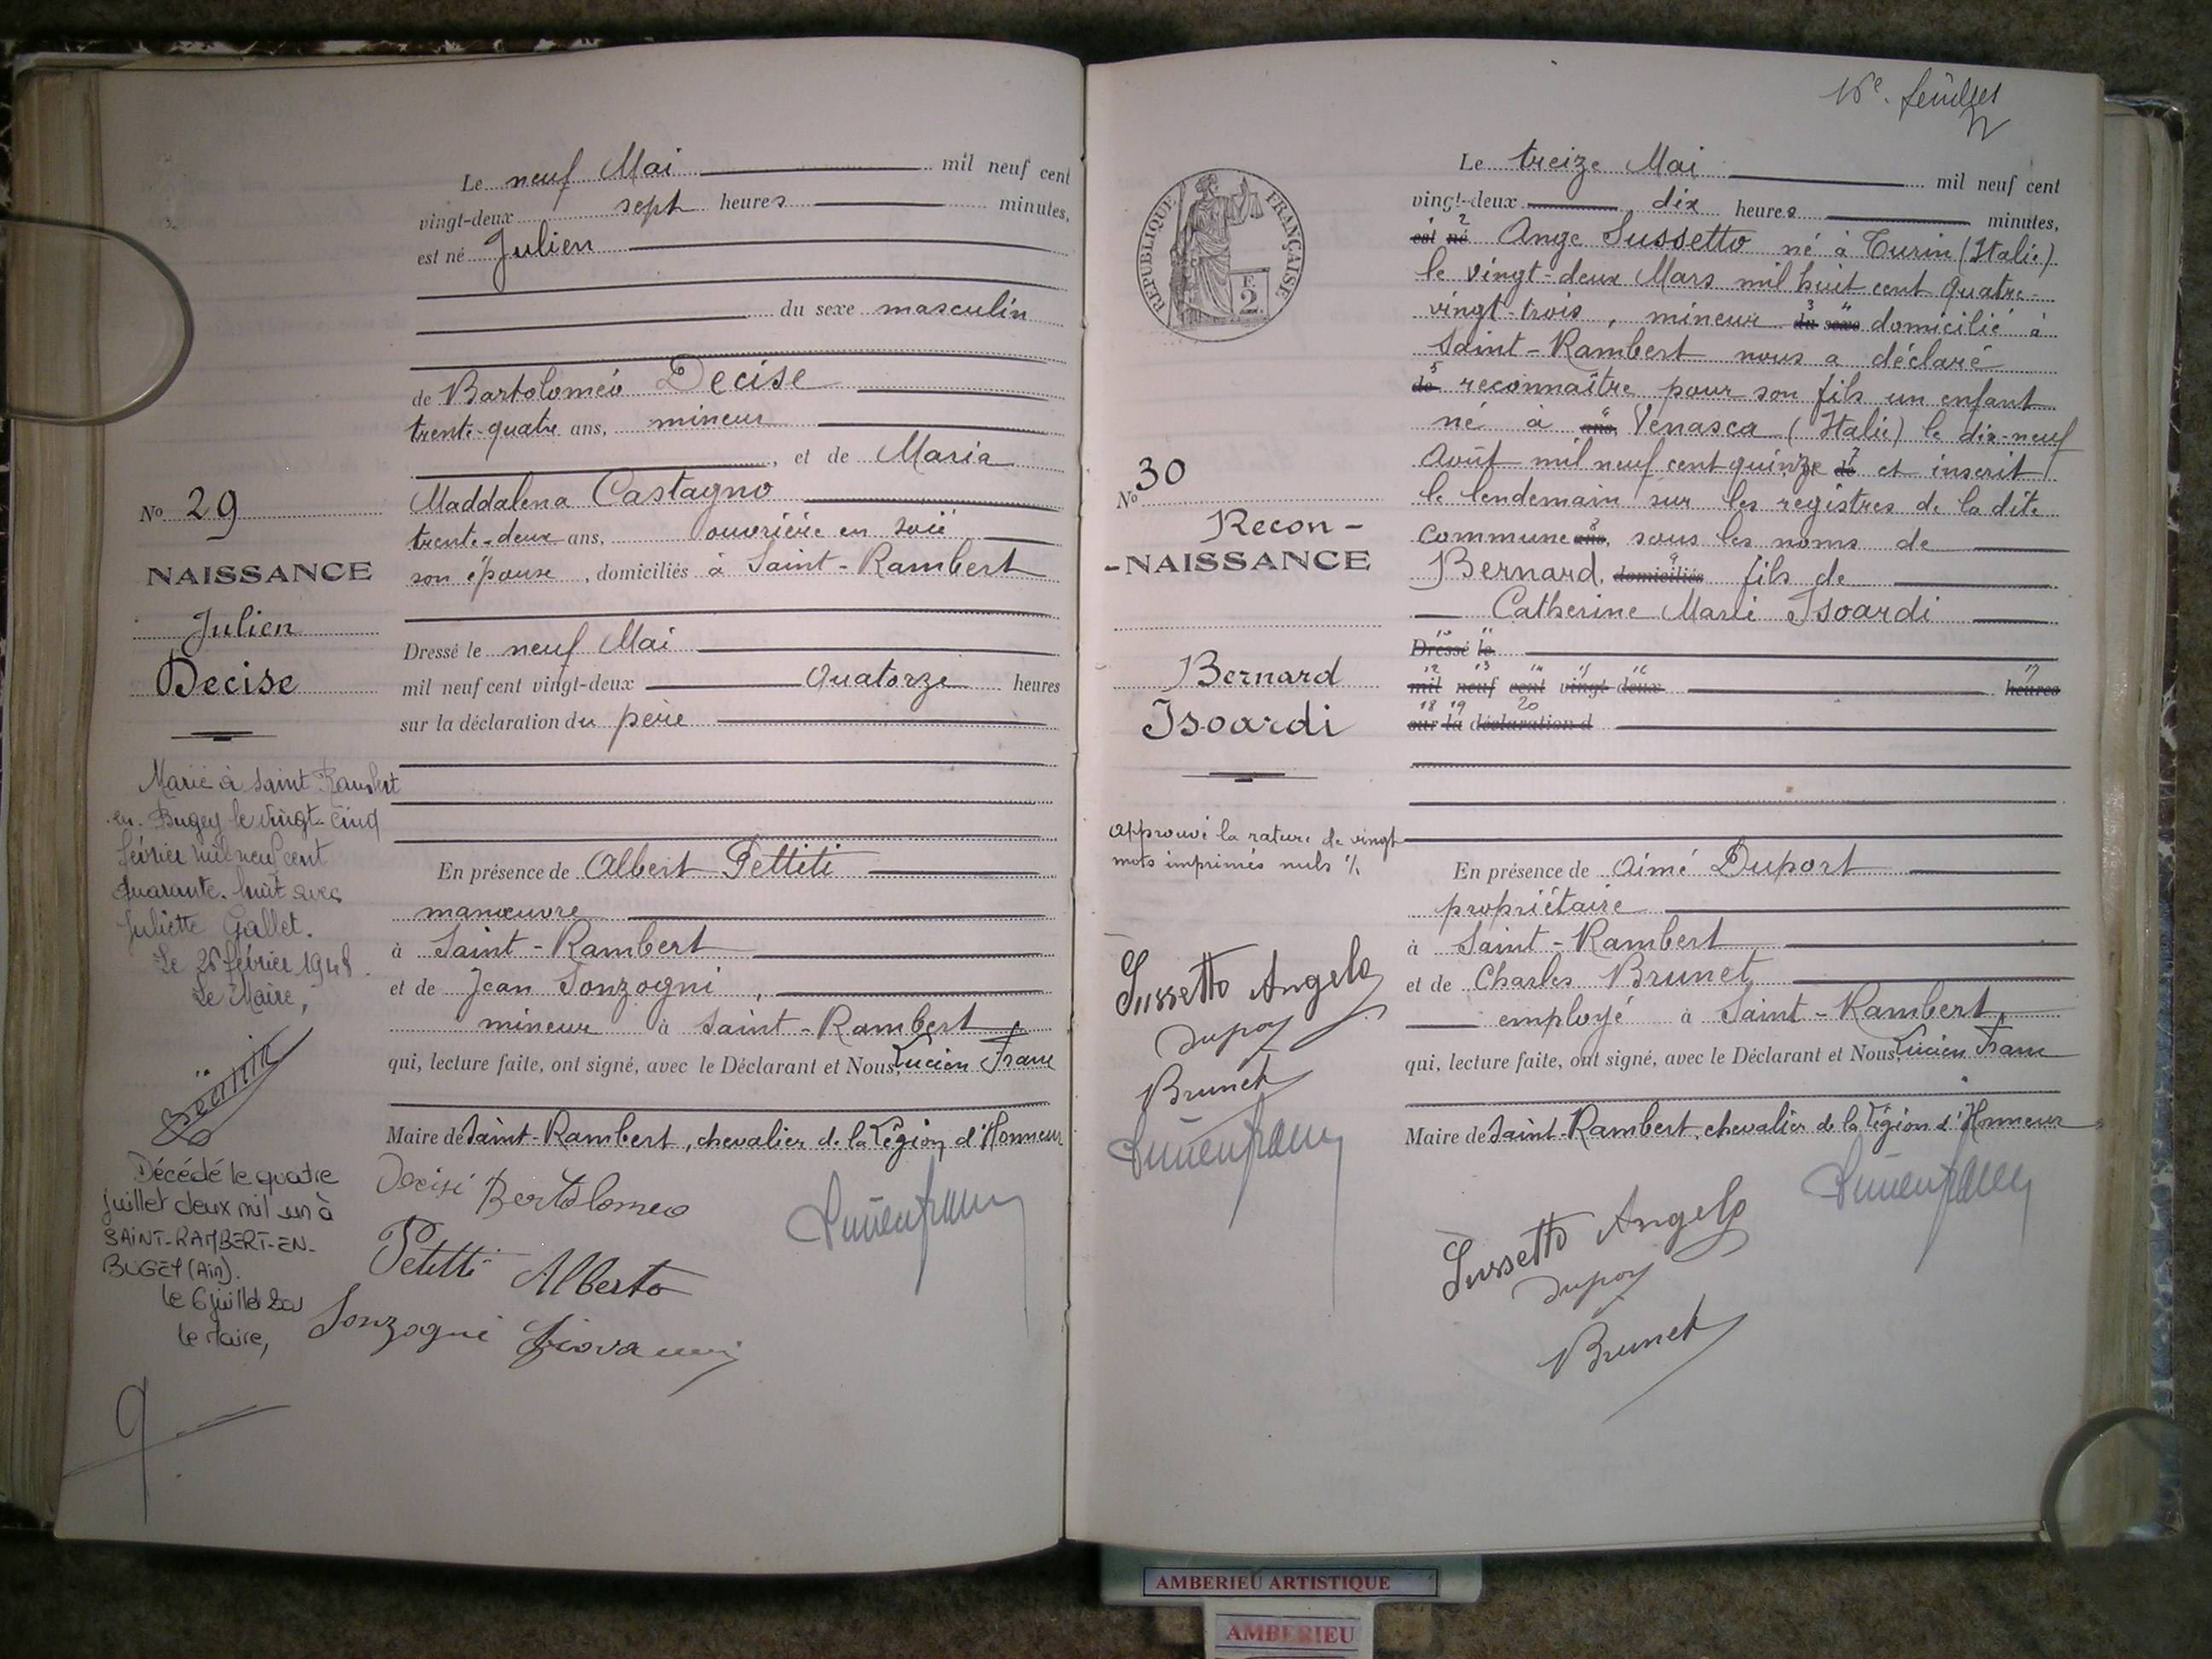 Le neuf Mai mil neuf cent
vingt-deux sept heures minutes,
est né Julien
du sexe masculin
de Bartoloméo Decise
trente-quatre ans, mineur
, et de Maria
Maddalena Castagno
trente-deux ans, ouvrière en soie
son épouse, domiciliés à Saint-Rambert
Dressé le neuf Mai
mil neuf cent vingt-deux Quatorze heures
sur la déclaration du père
En présence de Albert Pettiti
manœuvre
à Saint-Rambert
et de Jean Sonzogni,
mineur à Saint-Rambert
qui, lecture faite, ont signé, avec le Déclarant et Nous Lucien Franc
Maire de Saint-Rambert, chevalier de la Légion d'Honneur
Decisi Bertolomeo
Petitti Alberto
Sonzogni Giovanni
No 29
NAISSANCE
Julien
Decise
Marié à Saint Rambert
en Bugey le vingt-cinq
février mil neuf cent
quarante-huit avec
Juliette Gallet.
Le 26 février 1948.
Le Maire,
Décédé le quatre
juillet deux mil un à
SAINT-RAMBERT-EN-
BUGEY (Ain).
le 6 juillet 2001
le Maire,
16e. feuillet
REPUBLIQUE FRANÇAISE
F.
2.
Le treize Mai mil neuf cent
vingt-deux dix heures minutes,
est né 2 Ange Sussetto né à Turin (Italie)
le vingt-deux Mars mil huit cent quatre-
vingt-trois, mineur du 3 sexe 4 domicilié à
Saint-Rambert nous a déclaré
de 5 reconnaître pour son fils un enfant
né à ans, 6 Venasca (Italie) le dix-neuf
Août mil neuf cent quinze de 7 et inscrit
le lendemain sur les registres de la dite
commune ans, 8 sous les noms de
Bernard, domiciliés 9 fils de
Catherine Marie Isoardi
Dressé 10 le 11
mil 12 neuf 13 cent 14 vingt 15 deux 16 heures 17
sur 18 la 19 déclaration d 20
En présence de Aimé Duport
propriétaire
à Saint-Rambert
et de Charles Brunet
employé à Saint-Rambert
qui, lecture faite, ont signé, avec le Déclarant et Nous Lucien Franc
Maire de Saint-Rambert, chevalier de la Légion d'Honneur
Sussetto Angelo
Brunet
No 30
Recon-
-NAISSANCE
Bernard
Isoardi
approuvé la rature de vingt
mots imprimés nuls
Sussetto Angelo
Brunet
AMBERIEU ARTISTIQUE
AMBERIEU